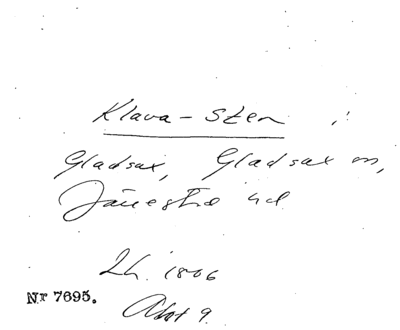 Klava-Sten
Gladsax, Gladsax sn,
Järrestad hd
Lh. 1806
Nr 7695.
Akt 9.